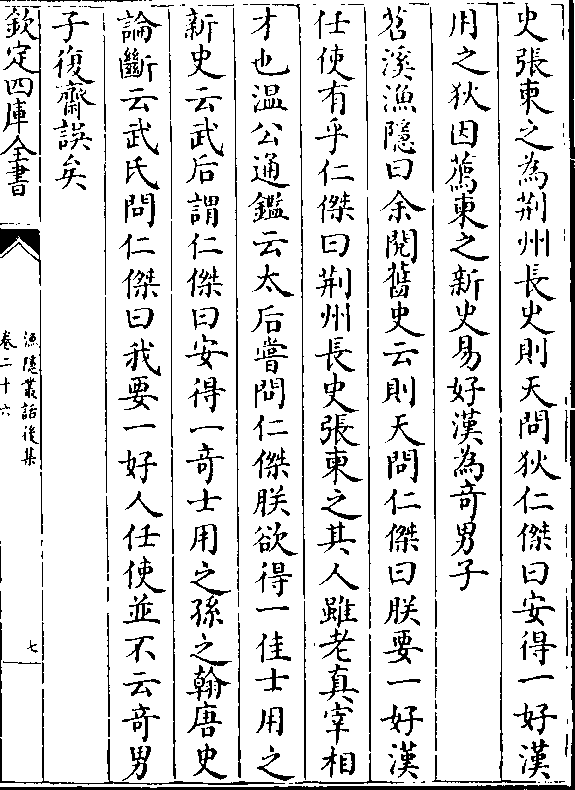 史張柬之為荆州長史則天問狄仁傑曰安得一好漢
用之狄因薦柬之新史易好漢為奇男子
苕溪漁隱曰余閱舊史云則天問仁傑曰朕要一好漢
任使有乎仁傑曰荆州長史張柬之其人雖老真宰相
才也温公通鑑云太后嘗問仁傑朕欲得一佳士用之
新史云武后謂仁傑曰安得一竒士用之孫之翰唐史
論斷云武氏問仁傑曰我要一好人任使並不云竒男
子復齋誤矣
欽定四庫全書
漁隱叢話後集
卷二十六
七